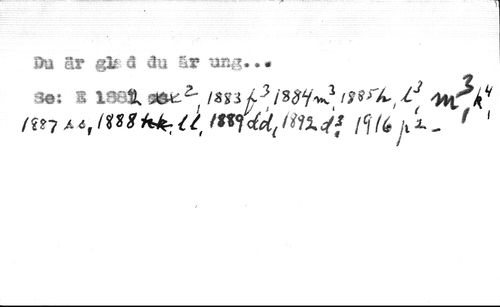 Du är glad du är ung...
Se: E 1882 2, 1883 f3, 1884 m3, 1885 h, l3, m3, k4,
1887 ss, 1888 ll, 1889 dd, 1892 d3, 1916 p2 -